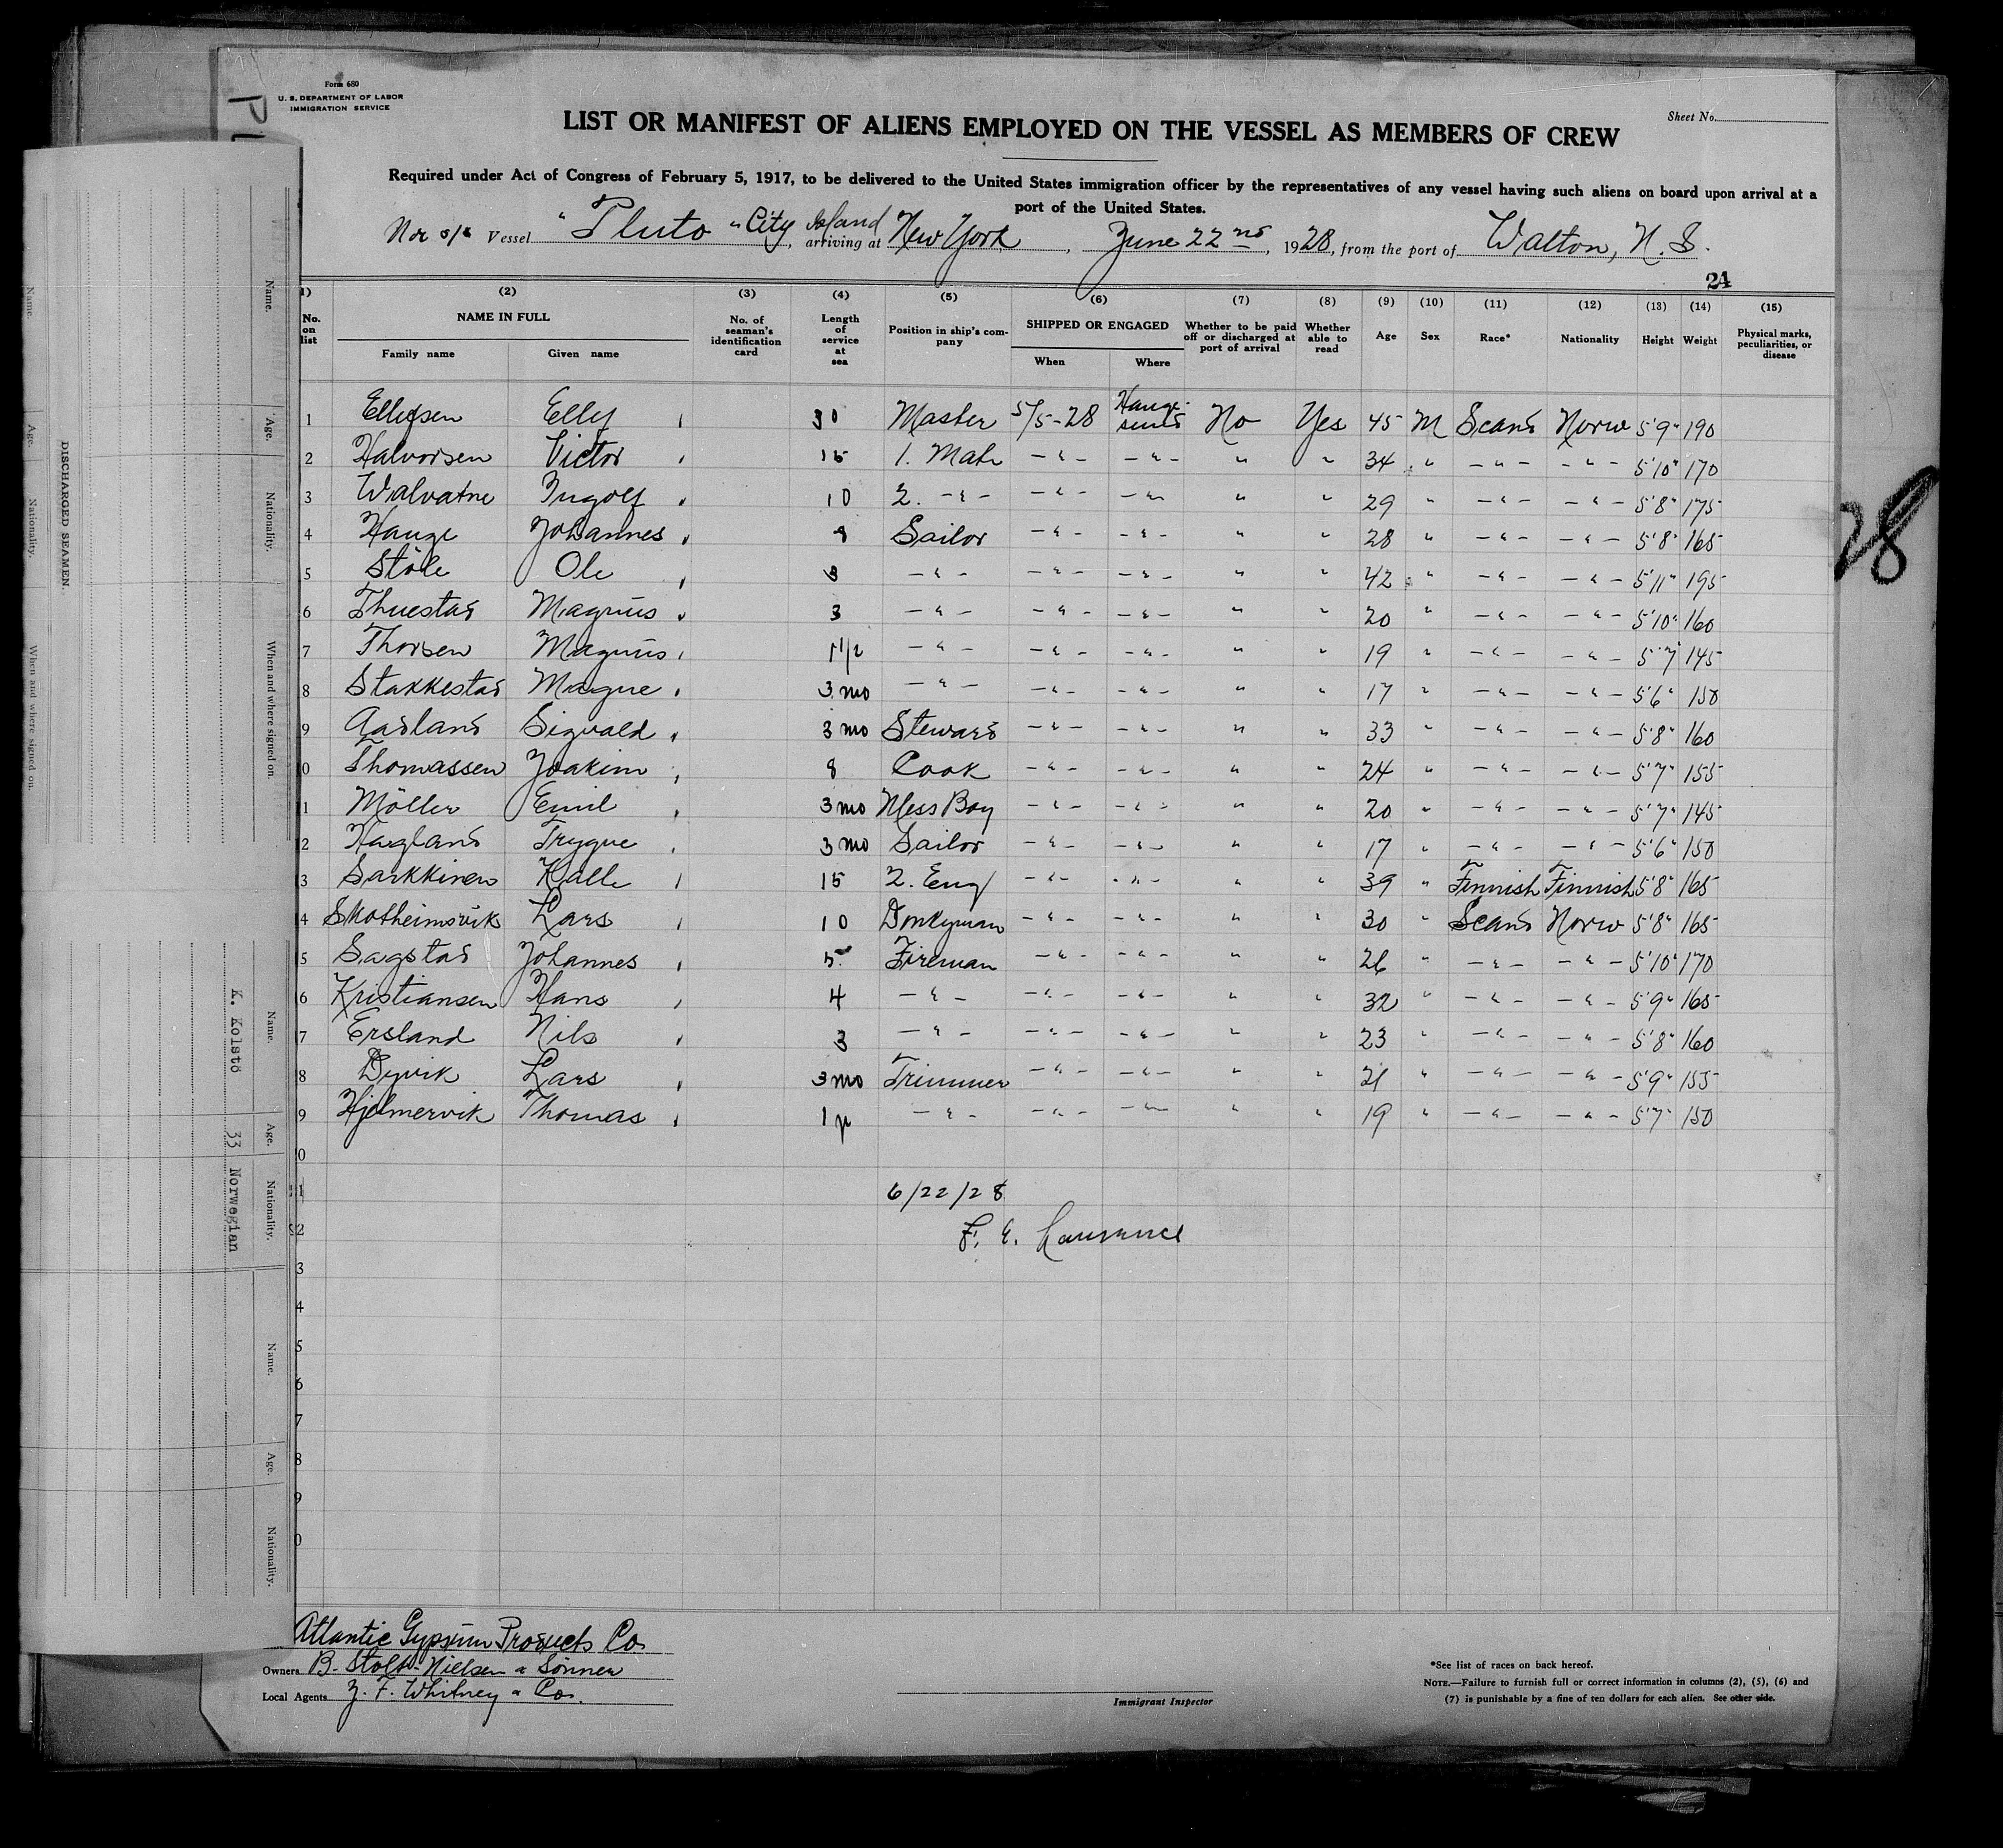 Form 680
U. S. DEPARTMENT OF LABOR
IMMIGRATION SERVICE
Sheet No.
LIST OR MANIFEST OF ALIENS EMPLOYED ON THE VESSEL AS MEMBERS OF CREW
Required under Act of Congress of February 5, 1917, to be delivered to the United States immigration officer by the representatives of any vessel having such aliens on board upon arrival at a
port of the United States.
Nor s/s Vessel "Pluto" City Island, arriving at New York, June 22nd, 1928, from the port of Walton, N. S.
24
(1) (2) (3) (4) (5) (6) (7) (8) (9) (10) (11) (12) (13) (14) (15)
No. on list NAME IN FULL Family name Given name No. of seaman's identification card Length of service at sea Position in ship's company SHIPPED OR ENGAGED When Where Whether to be paid off or discharged at port of arrival Whether able to read Age Sex Race* Nationality Height Weight Physical marks, peculiarities, or disease
1 Ellefsen Ellef 30 Master 5/5-28 No Yes 45 M Scand Norw 5'9" 190
2 Halvorsen Victor 15 1. Mate -"- -"- " " 34 " -"- -"- 5'10" 170
3 Walvatne Ingolf 10 2. -"- -"- -"- " " 29 " -"- -"- 5'8" 175
4 Hauge Johannes Sailor -"- -"- " " 28 " -"- -"- 5'8" 165
5 Stöle Ole 3 -"- -"- -"- " " 42 " -"- -"- 5'11" 195
6 Thuestad Magnus 3 -"- -"- -"- " " 20 " -"- -"- 5'10" 160
7 Thorsen Magnus 1 1/2 -"- -"- -"- " " 19 " -"- -"- 5'7" 145
8 Stakkestad Magne 3 mo -"- -"- -"- " " 17 " -"- -"- 5'6" 150
9 Aasland Sigvald 3 mo Steward -"- -"- " " 33 " -"- -"- 5'8" 160
0 Thomassen Joakim 8 Cook -"- -"- " " 24 " -"- -"- 5'7" 155
1 Möller Emil 3 mo Mess Boy -"- -"- " " 20 " -"- -"- 5'7" 145
2 Hagland Trygve 3 mo Sailor -"- -"- " " 17 " -"- -"- 5'6" 150
3 Sarkkinen Kalle 15 2. Eng -"- -"- " " 39 " Finnish Finnish 5'8" 165
4 Skotheimsvik Lars 10 Donkyman -"- -"- " " 30 " Scand Norw 5'8" 165
5 Sagstad Johannes 5 Fireman -"- -"- " " 26 " -"- -"- 5'10" 170
6 Kristiansen Hans 4 -"- -"- -"- " " 32 " -"- -"- 5'9" 165
7 Ersland Nils 3 -"- -"- -"- " " 23 " -"- -"- 5'8" 160
8 Dyvik Lars 3 mo Trimmer -"- -"- " " 21 " -"- -"- 5'9" 155
9 Hjelmervik Thomas -"- -"- -"- " " 19 " -"- -"- 5'7" 150
0
1 6/22/28
2 F. E. Lawrence
3
4
5
6
7
8
9
0
28
Atlantic Gypsum Products Co
Owners B. Stolt-Nielsen & Sönner
Local Agents J. F. Whitney & Co.
Immigrant Inspector
*See list of races on back hereof.
NOTE.—Failure to furnish full or correct information in columns (2), (5), (6) and
(7) is punishable by a fine of ten dollars for each alien. See other side.
DISCHARGED SEAMEN.
Name. Age. Nationality. When and where signed on.
Name. Age. Nationality. When and where signed on.
K. Kolstö 33 Norwegian
Name. Age. Nationality.
Name. Age. Nationality.